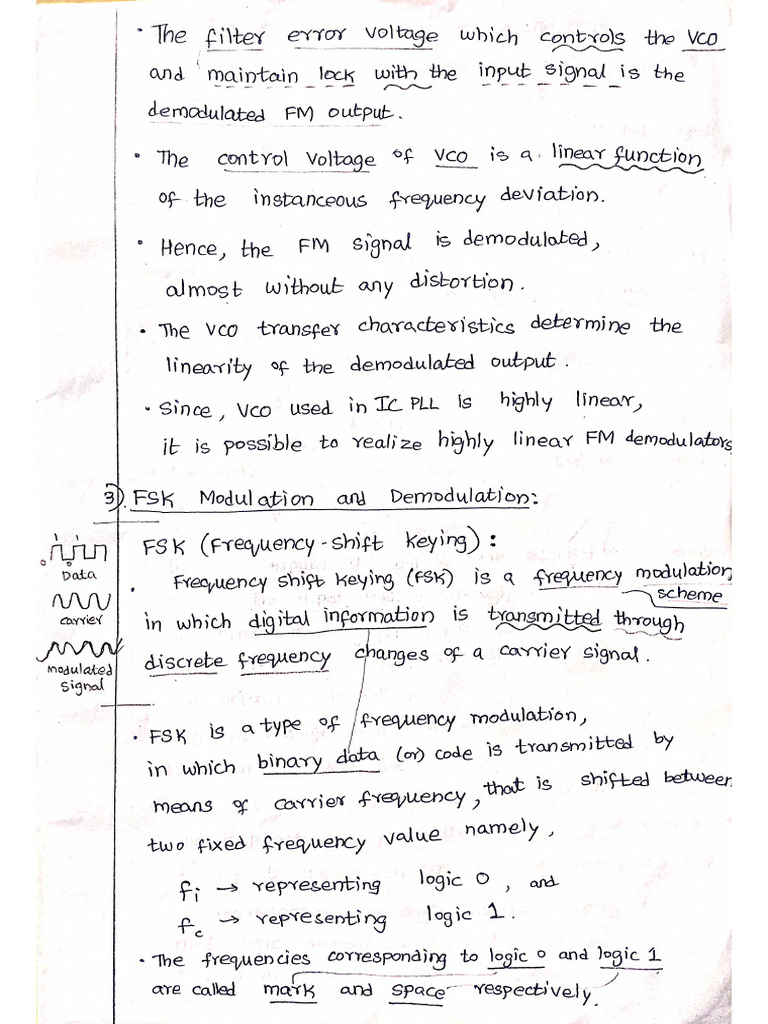 • The filter error voltage which controls the VCO
and maintain lock with the input signal is the
demodulated FM output.
• The control voltage of VCO is a linear function
of the instanceous frequency deviation.
• Hence, the FM signal is demodulated,
almost without any distortion.
• The VCO transfer characteristics determine the
linearity of the demodulated output.
• Since, VCO used in IC PLL is highly linear,
it is possible to realize highly linear FM demodulators
3) FSK Modulation and Demodulation:
FSK (Frequency-shift keying):
1 1
0 0
Data
carrier
modulated
signal
• Frequency shift keying (FSK) is a frequency modulation
scheme
in which digital information is transmitted through
discrete frequency changes of a carrier signal.
• FSK is a type of frequency modulation,
in which binary data (or) code is transmitted by
means of carrier frequency, that is shifted between
two fixed frequency value namely,
fi → representing logic 0, and
fc → representing logic 1.
• The frequencies corresponding to logic 0 and logic 1
are called mark and space respectively.